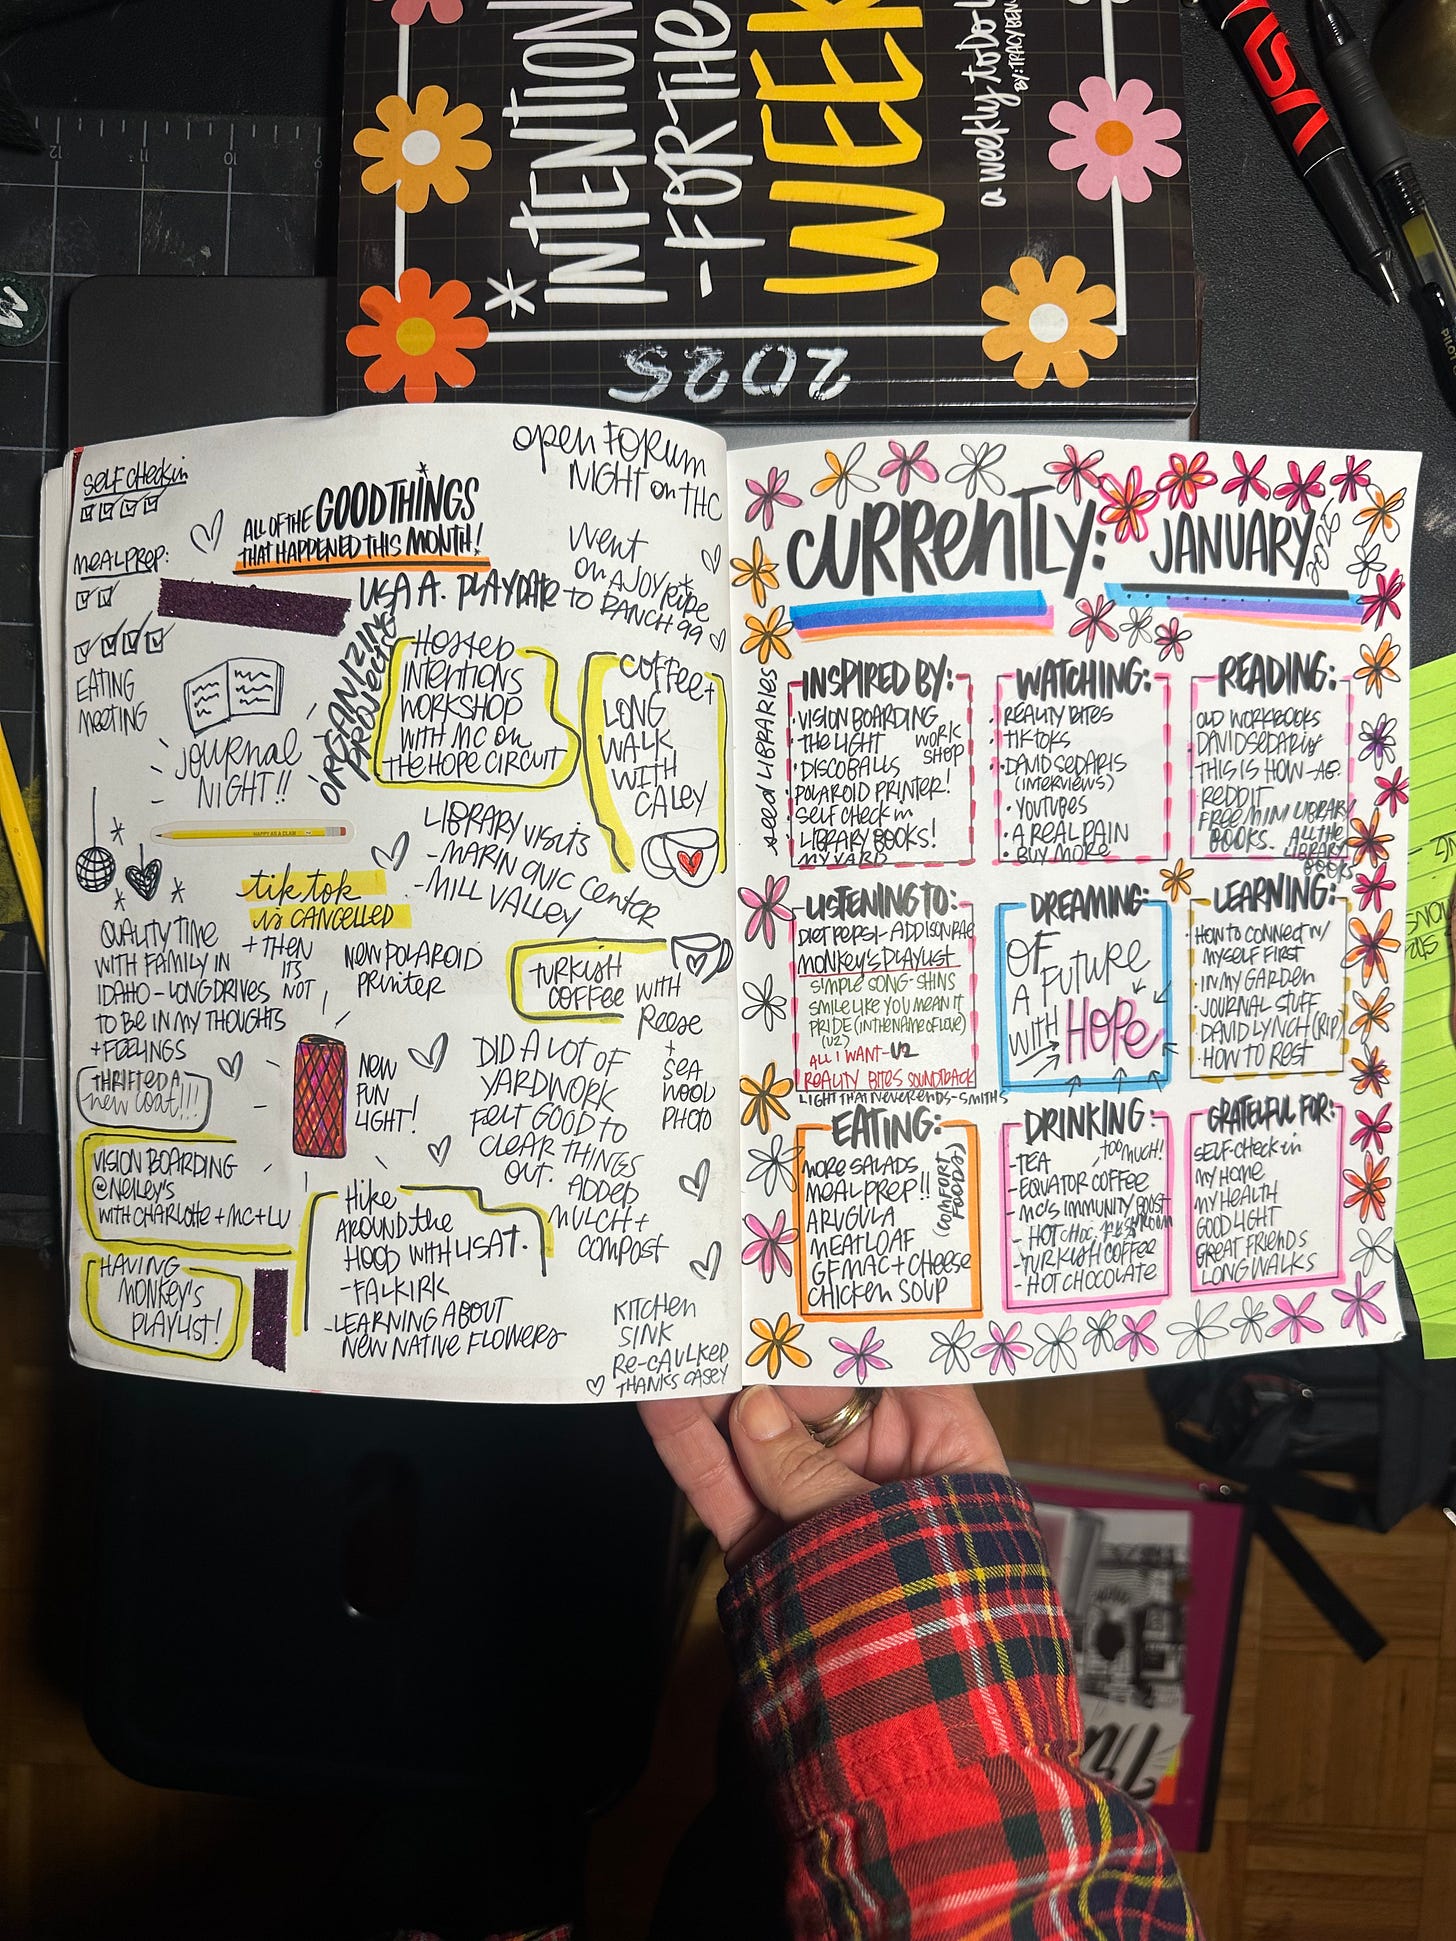 *INTENTIONS
-FOR THE
WEEK
a weekly to Do L
BY: TRACY BEN
2025
12
11
10
9
SELF CHECK in
MEAL PREP:
EATING
MEETING
ALL OF THE GOOD THINGS
THAT HAPPENED THIS MONTH!
open FORUM
NIGHT on THC
Went
on A JOY RIDE
TO RANCH 99
USA A. PLAYDATE
ORGANIZING
PROJECTS
JOURNAL
NIGHT!!
HOSTED
INTENTIONS
WORKSHOP
WITH MC on
THE HOPE CIRCUIT
COFFEE +
LONG
WALK
WITH
CALEY
HAPPY AS A CLAM
LIBRARY VISITS
-MARIN CIVIC CENTER
-MILL VALLEY
tik tok
is CANCELLED
+ THEN
ITS
NOT
QUALITY TIME
WITH FAMILY IN
IDAHO - LONG DRIVES
TO BE IN MY THOUGHTS
+ FEELINGS
NEW POLAROID
PRINTER
TURKISH
COFFEE
WITH
Reese
+
SEA
WOOD
PHOTO
THRIFTED A
new coat!!!
NEW
FUN
LIGHT!
DID A LOT OF
YARDWORK
FELT GOOD TO
CLEAR THINGS
OUT. ADDED
MULCH +
COMPOST
VISION BOARDING
@NELLEY'S
WITH CHARLOTTE + MC + LU
HAVING
MONKEY'S
PLAYLIST!
HIKE
AROUND the
HOOD WITH LISA T.
-FALKIRK
-LEARNING ABOUT
NEW NATIVE FLOWERS
KITCHEN
SINK
RE-CAULKED
THANKS CASEY
CURRENTLY: JANUARY
2025
seed LIBRARIES
INSPIRED BY:
·VISION BOARDING
WORK
SHOP
·THE LIGHT
·DISCO BALLS
·POLAROID PRINTER!
·SELF CHECK in
·LIBRARY BOOKS!
MY YARD
WATCHING:
·REALITY BITES
·TIKTOKS
·DAVID SEDARIS
(INTERVIEWS)
·YOUTUBES
·A REAL PAIN
·BUY MORE
READING:
OLD WORKBOOKS
DAVID SEDARIS
THIS IS HOW -AB.
REDDIT
FREE MINI LIBRARY
BOOKS.
ALL THE
LIBRARY
BOOKS
LISTENING TO:
DIET PEPSI - ADDISON RAE
MONKEY'S PLAYLIST
SIMPLE SONG - SHINS
SMILE LIKE YOU MEAN IT
PRIDE (IN THE NAME OF LOVE)
(U2)
ALL I WANT - U2
REALITY BITES SOUNDTRACK
LIGHT THAT NEVER ENDS - SMITHS
DREAMING:
OF
A FUTURE
WITH HOPE
LEARNING:
·HOW TO CONNECT W/
MYSELF FIRST
·IN MY GARDEN
·JOURNAL STUFF
·DAVID LYNCH (RIP)
·HOW TO REST
EATING:
MORE SALADS
MEAL PREP!!
ARUGULA
MEATLOAF
GF MAC + CHEESE
CHICKEN SOUP
(COMFORT
FOODS)
DRINKING:
TOO MUCH!!
-TEA
-EQUATOR COFFEE
-MC'S IMMUNITY BOOST
-HOT CHOC.
-TURKISH COFFEE
-HOT CHOCOLATE
GRATEFUL FOR:
SELF-CHECK in
MY HOME
MY HEALTH
GOOD LIGHT
GREAT FRIENDS
LONG WALKS